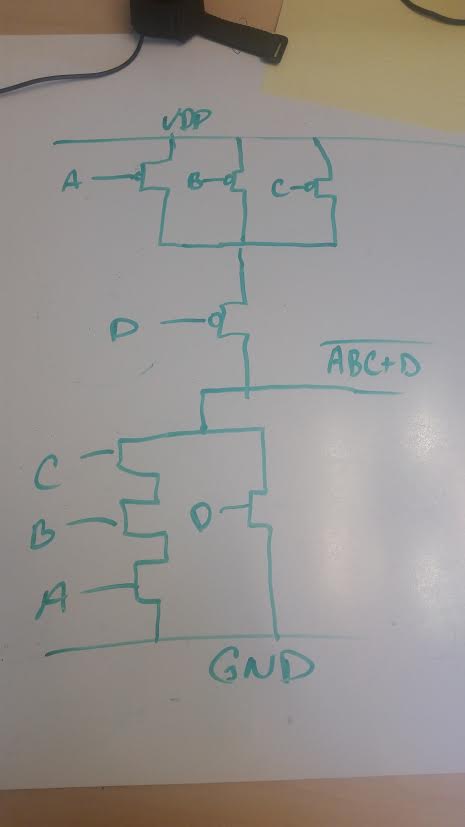 VDD
A
B
C
D
\overline{ABC+D}
C
B
D
A
GND